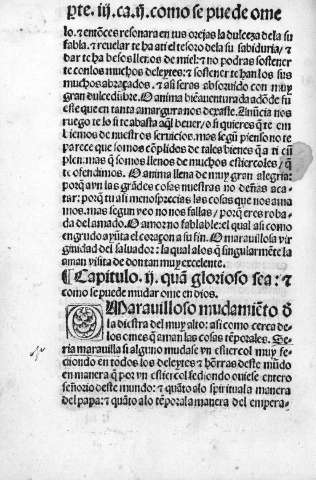 Pꝛte. iij. ca. ij. como se puede ome
lo. ⁊ entõces resonara en tus orejas la dulceza dela su
fabla. ⁊ reuelar te ha ati el tesoro dela su sabiduria/ ⁊
dar te ha besos llenos de miel: ⁊ no podras sostener
te con los muchos deleytes: ⁊ sostener te han los sus
muchos abraçados. ⁊ asi seras absoruido con muy
gran dulcedũbre. O anima biẽauenturada adõde fu
este que en tanta amargura nos dexaste. Anũcia nos
ruego te lo si te abasta aq̃l beuer/ o si quieres q̃ te em
biemos de nuestros seruicios. mas segũ piẽso no te
parece que somos cõplidos de tales bienes q̃ a ti cũ
plen. mas q̃ somos llenos de muchos estiercoles/ q̃
te ofendimos. O anima llena de muy gran alegria:
porq̃ ayn las grãdes cosas nuestras no deñas aca-
tar: porq̃ tu asi menosprecias las cosas que nos ama
mos. mas segun veo no nos fallas/ porq̃ eres roba-
da del amado. O amor no fablable: el qual asi como
engrudo ayũta el coraçon a su fin. O marauillosa vir
gruidad del saluador: la qual a los q̃ singularmẽte la
aman visita de don tan muy excelente.
¶ Capitulo. ij. quã glorioso sea: ⁊
como se puede mudar ome en dios.
O Marauilloso mudamiẽto ð
la diestra del muy alto: asi como cerca de
los omes q̃ aman las cosas tẽporales. Se
ria marauilla si alguno mudase vn estiercol muy fe-
diondo en todos los deleytes ⁊ hõrras deste mũdo
en manera q̃ por vn estiercol fediondo ouiese entero
señorio deste mundo: ⁊ quãto alo spiritual a manera
del papa: ⁊ quãto alo tẽporal a manera del empera-